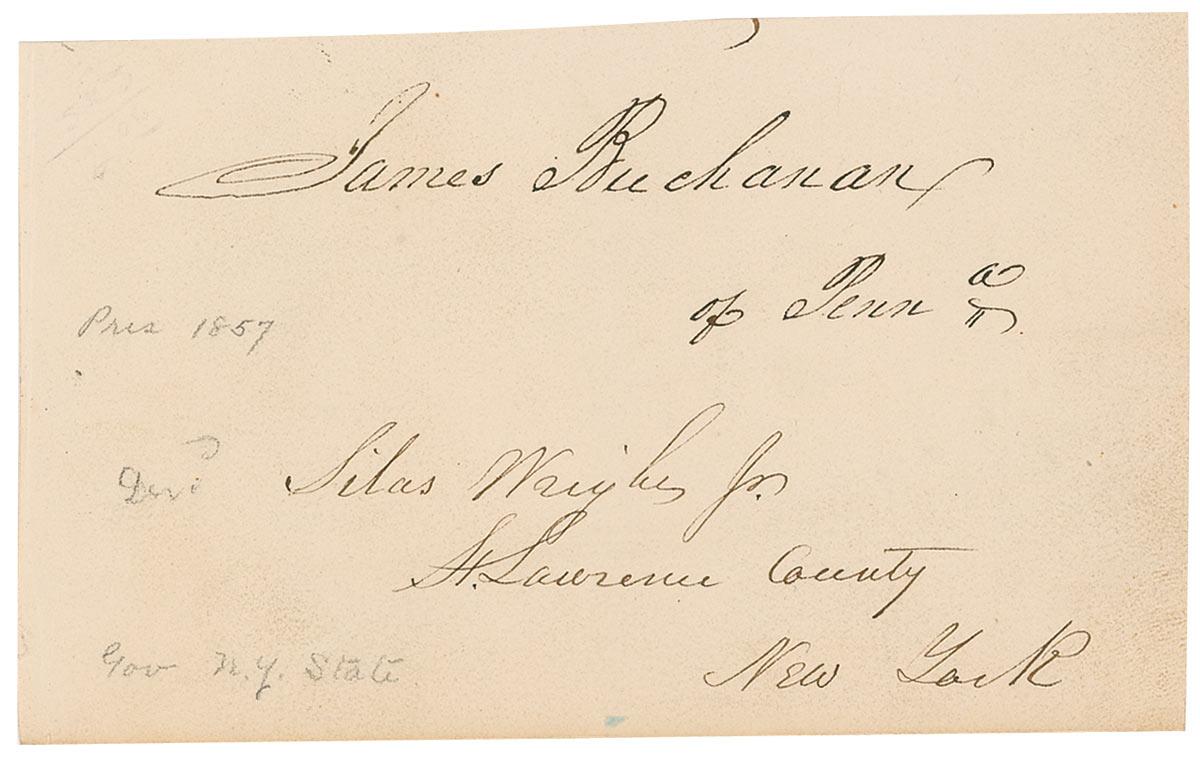 James Buchanan
of Penn a
Pres 1857
Silas Wright Jr.
St. Lawrence County
Gov N.Y. State
New York